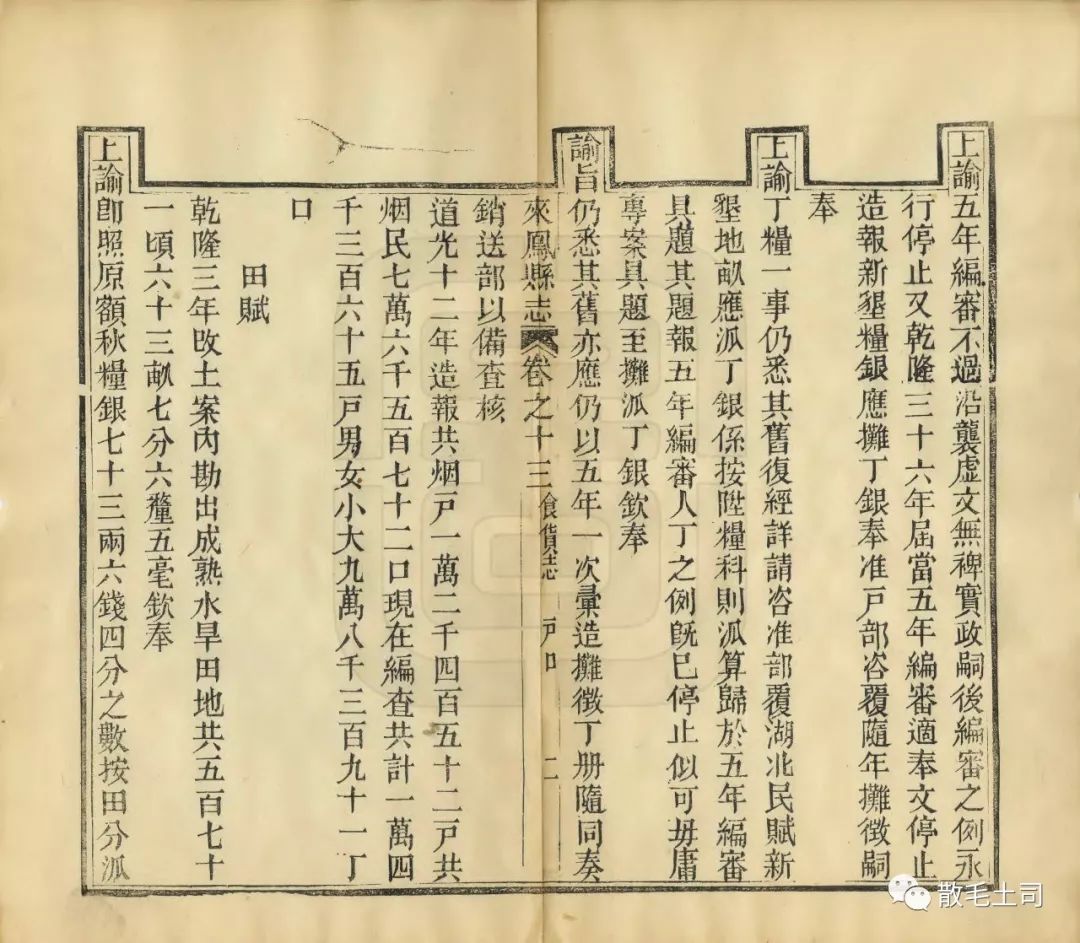 上諭五年編審不過沿襲虛文無裨實政嗣後編審之例永
行停止又乾隆三十六年屆當五年編審適奉文停止
造報新墾糧銀應攤丁銀奉准戸部咨覆隨年攤徵嗣
奉
上諭丁糧一事仍悉其舊復經詳請咨准部覆湖北民賦新
墾地畝應派丁銀係按陞糧科則派算歸於五年編審
具題其題報五年編審人丁之例旣巳停止似可毋庸
專案具題至攤派丁銀欽奉
諭旨仍悉其舊亦應仍以五年一次彙造攤徵丁册隨同奏
來鳳縣志 卷之十三 食貨志 戸口 二
銷送部以備查核
道光十二年造報共烟戸一萬二千四百五十二戸共
烟民七萬六千五百七十二口現在編查共計一萬四
千三百六十五戸男女小大九萬八千三百九十一丁
口
田賦
乾隆三年改土案內勘出成熟水旱田地共五百七十
一頃六十三畝七分六釐五毫欽奉
上諭卽照原額秋糧銀七十三兩六錢四分之數按田分派
散毛土司